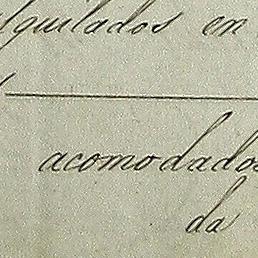 alquilados en
acomodados
da